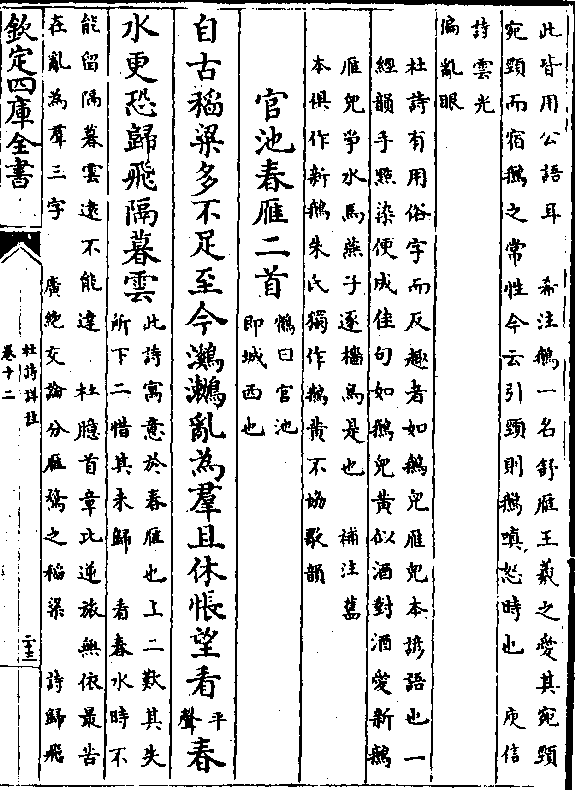 此皆用公語耳　希注鵝一名舒雁王羲之愛其宛頸
宛頸而宿鵝之常性今云引頸則鵝嗔怒時也　庾信
詩雲光
偏亂眼
杜詩有用俗字而反趣者如鵝兒雁兒本諺語也一
經韻手點染便成佳句如鵝兒黃似酒對酒愛新鵝
雁兒爭水馬燕子逐檣烏是也　補注舊
本俱作新鵝朱氏獨作鵝黃不協歌韻
官池春雁二首
鶴曰官池
即城西也
自古稻粱多不足至今鸂鶒亂為羣且休悵望看
平
聲
春
水更恐歸飛隔暮雲
此詩寓意於春雁也上二歎其失
所下二惜其未歸　看春水時不
能留隔暮雲遠不能違　杜臆首章比逆旅無依最苦
在亂為羣三字　廣絶交論分雁鶩之稻粱　詩歸飛
欽定四庫全書
杜詩詳註
卷十二